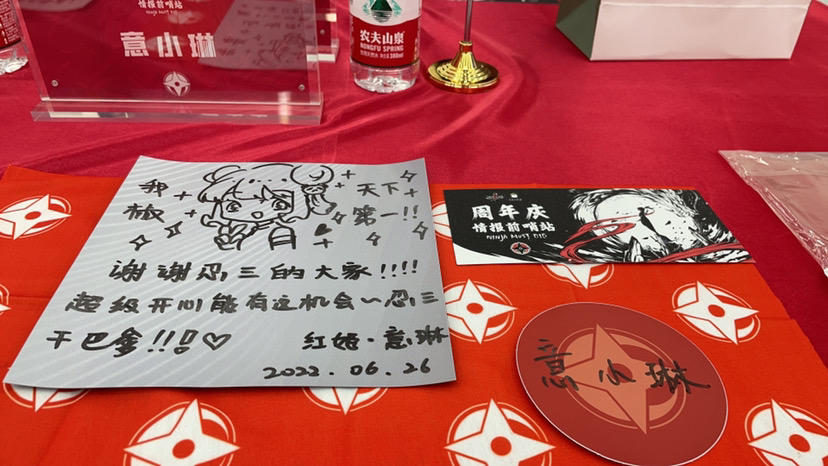 情报前哨站
NINJA MUST DIE
意小琳
农夫山泉
NONGFU SPRING
380ml
我
椒
天下
第一!!
谢谢忍三的大家!!!!
超级开心能有这机会~忍三
干巴爹!!!♡
红姬·意琳
2022.06.26
周年庆
情报前哨站
NINJA MUST DIE
意小琳